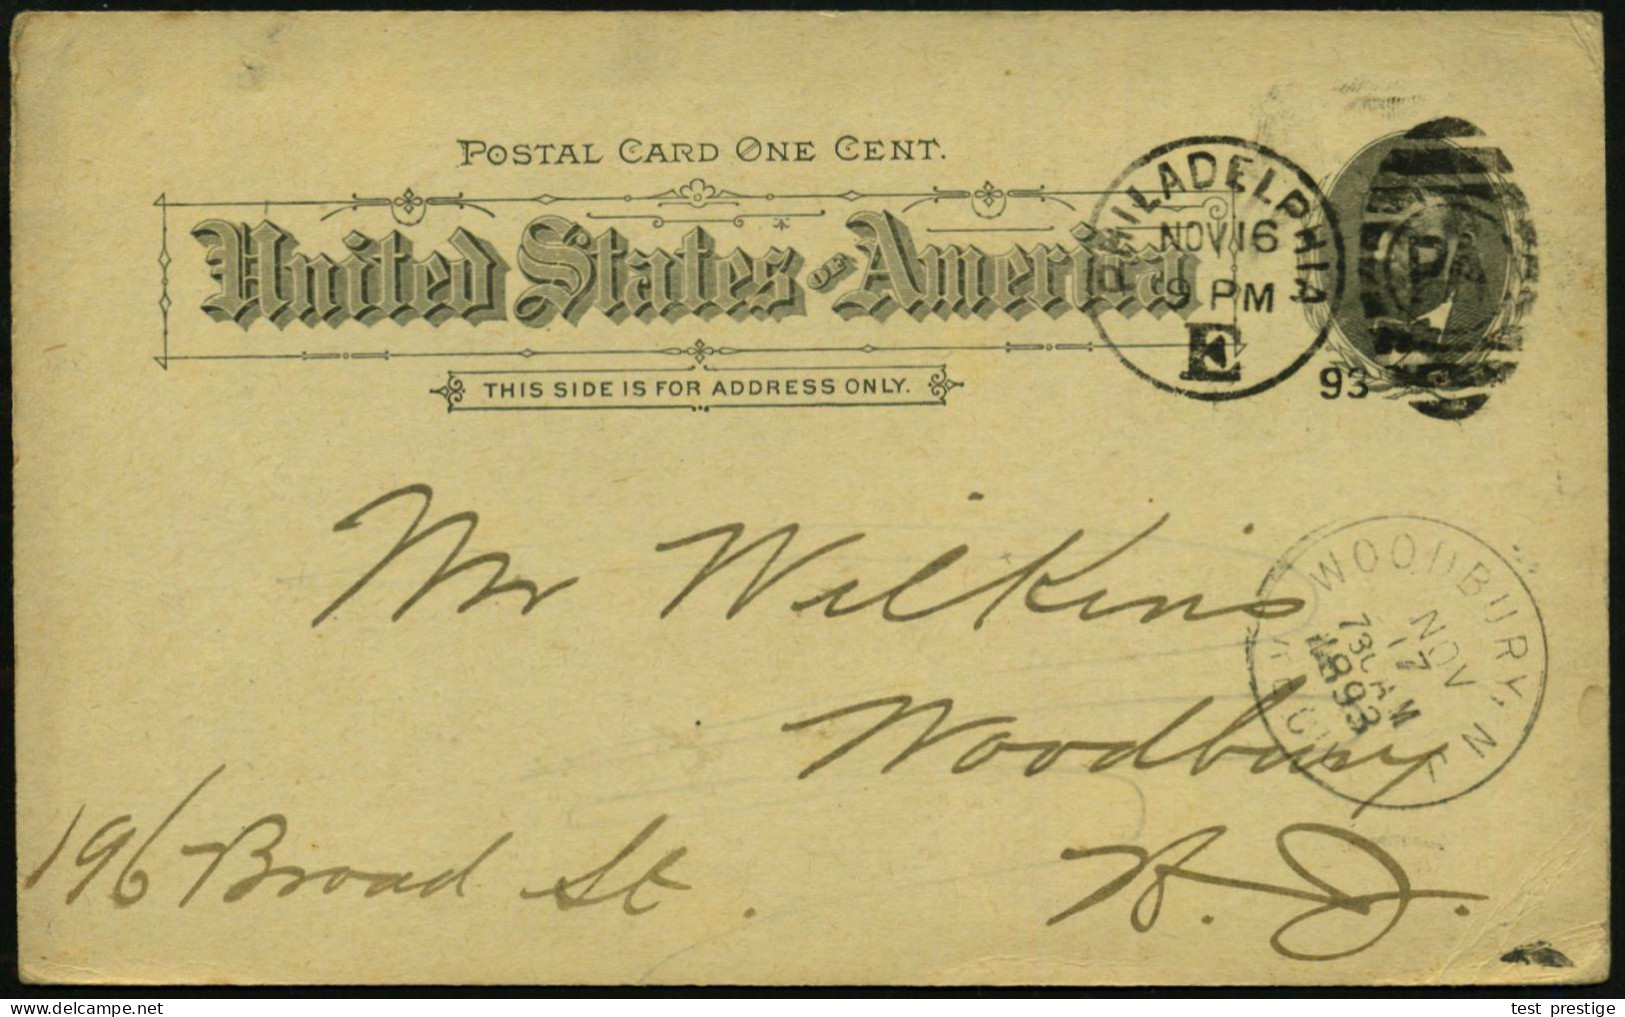 POSTAL CARD ONE CENT.
United States OF America
THIS SIDE IS FOR ADDRESS ONLY.
PHILADELPHIA
NOV 16
9 PM
E
93
PA
Mr Wilkins
Woodbury
N. J.
196 Broad St.
WOODBURY, N J
NOV
17
730 AM
1893
REC'D
test prestige